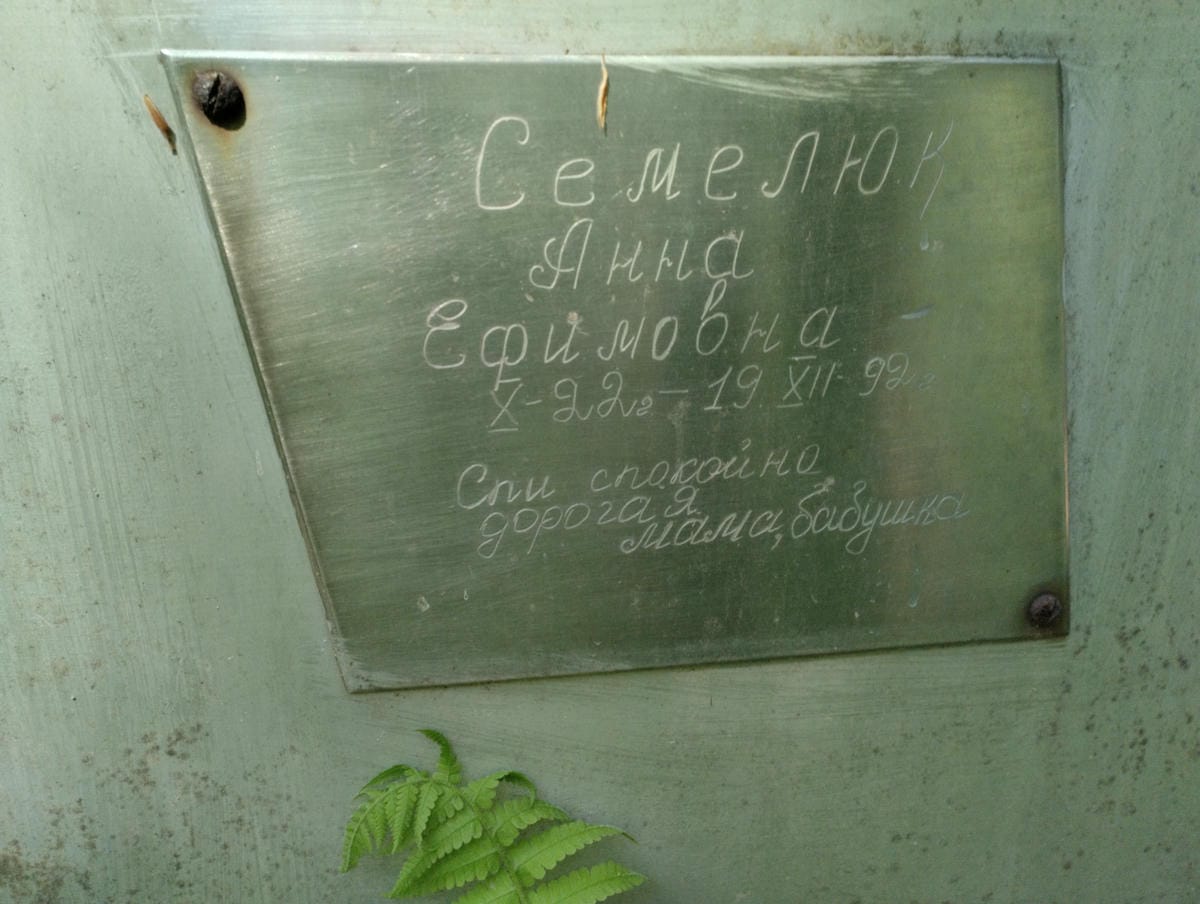 Семелюк
Анна
Ефимовна
X-22г – 19 XII-92г
Спи спокойно
дорогая
мама, бабушка